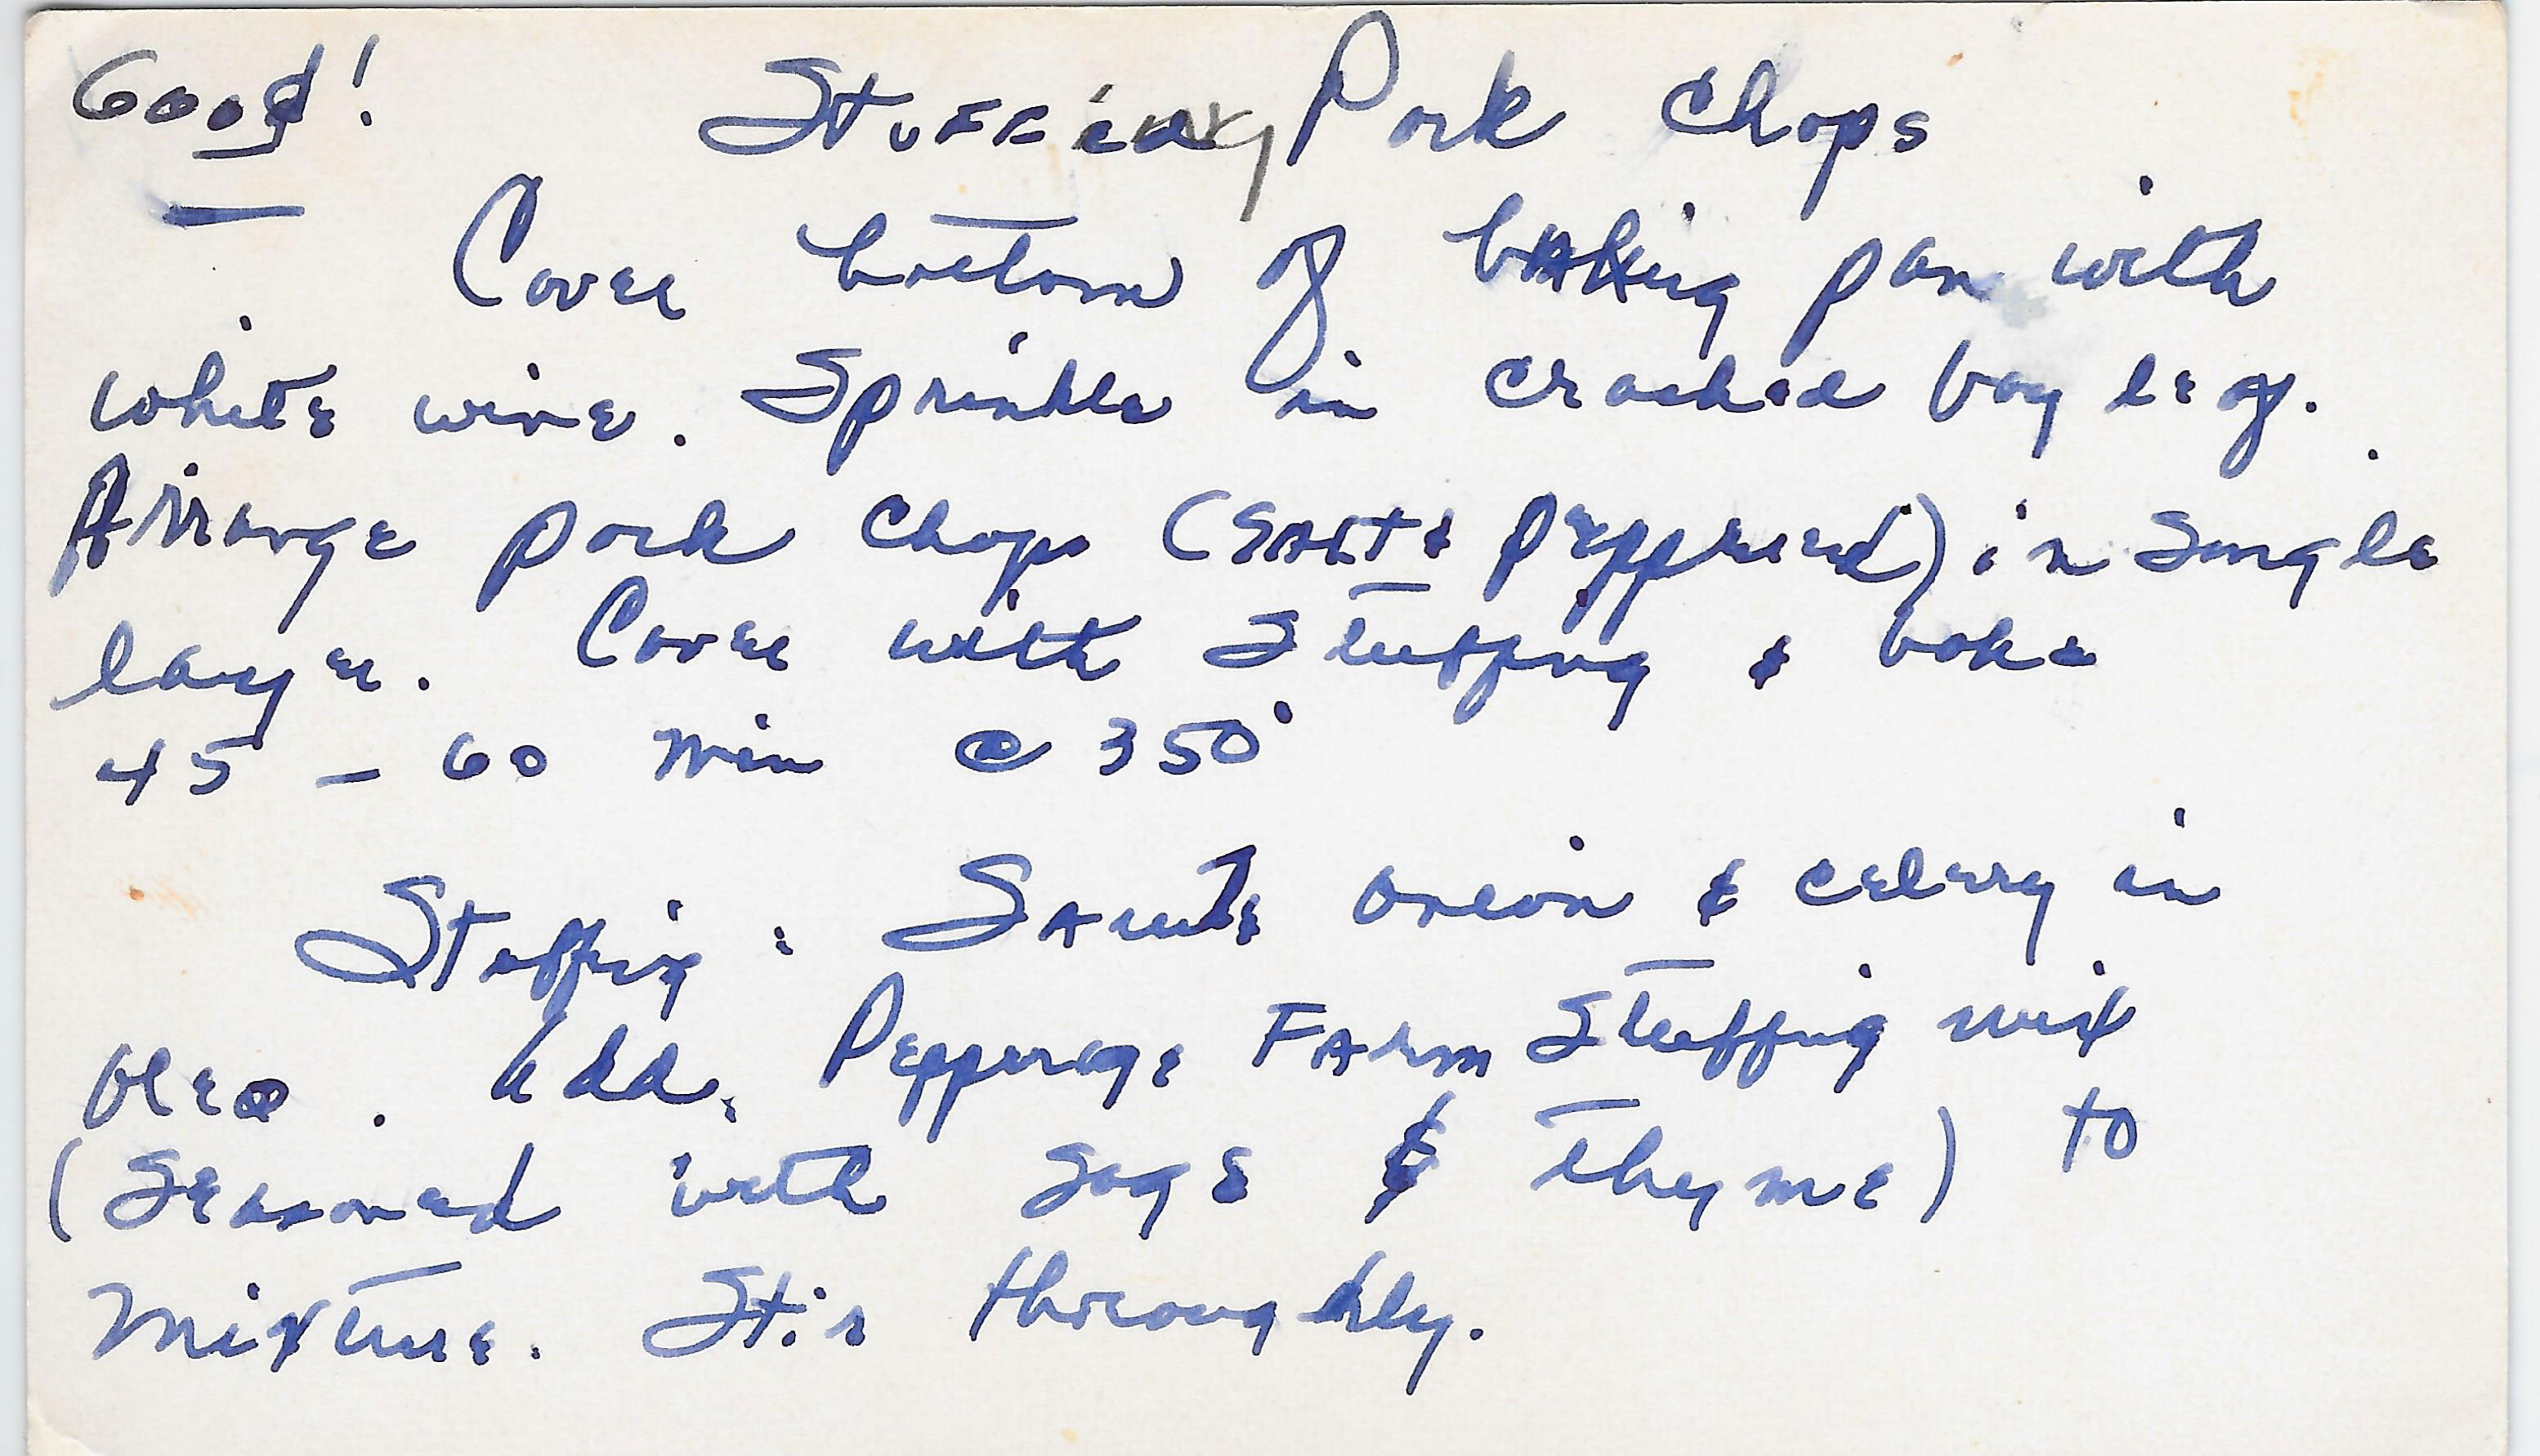 Good! Stuffing Pork Chops
Cover bottom of baking pan with
white wine. Sprinkle in cracked bay leaf.
Arrange pork chops (SALT & peppered) in single
layer. Cover with stuffing & bake
45 - 60 min @ 350°
Stuffing: Saute onion & celery in
oleo. Add Pepperage Farm Stuffing mix
(seasoned with sage & thyme) to
mixture. Stir thoroughly.